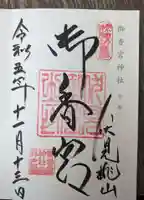 御香宮神社
伏見桃山
御香宮
令和五年
十一月十三日